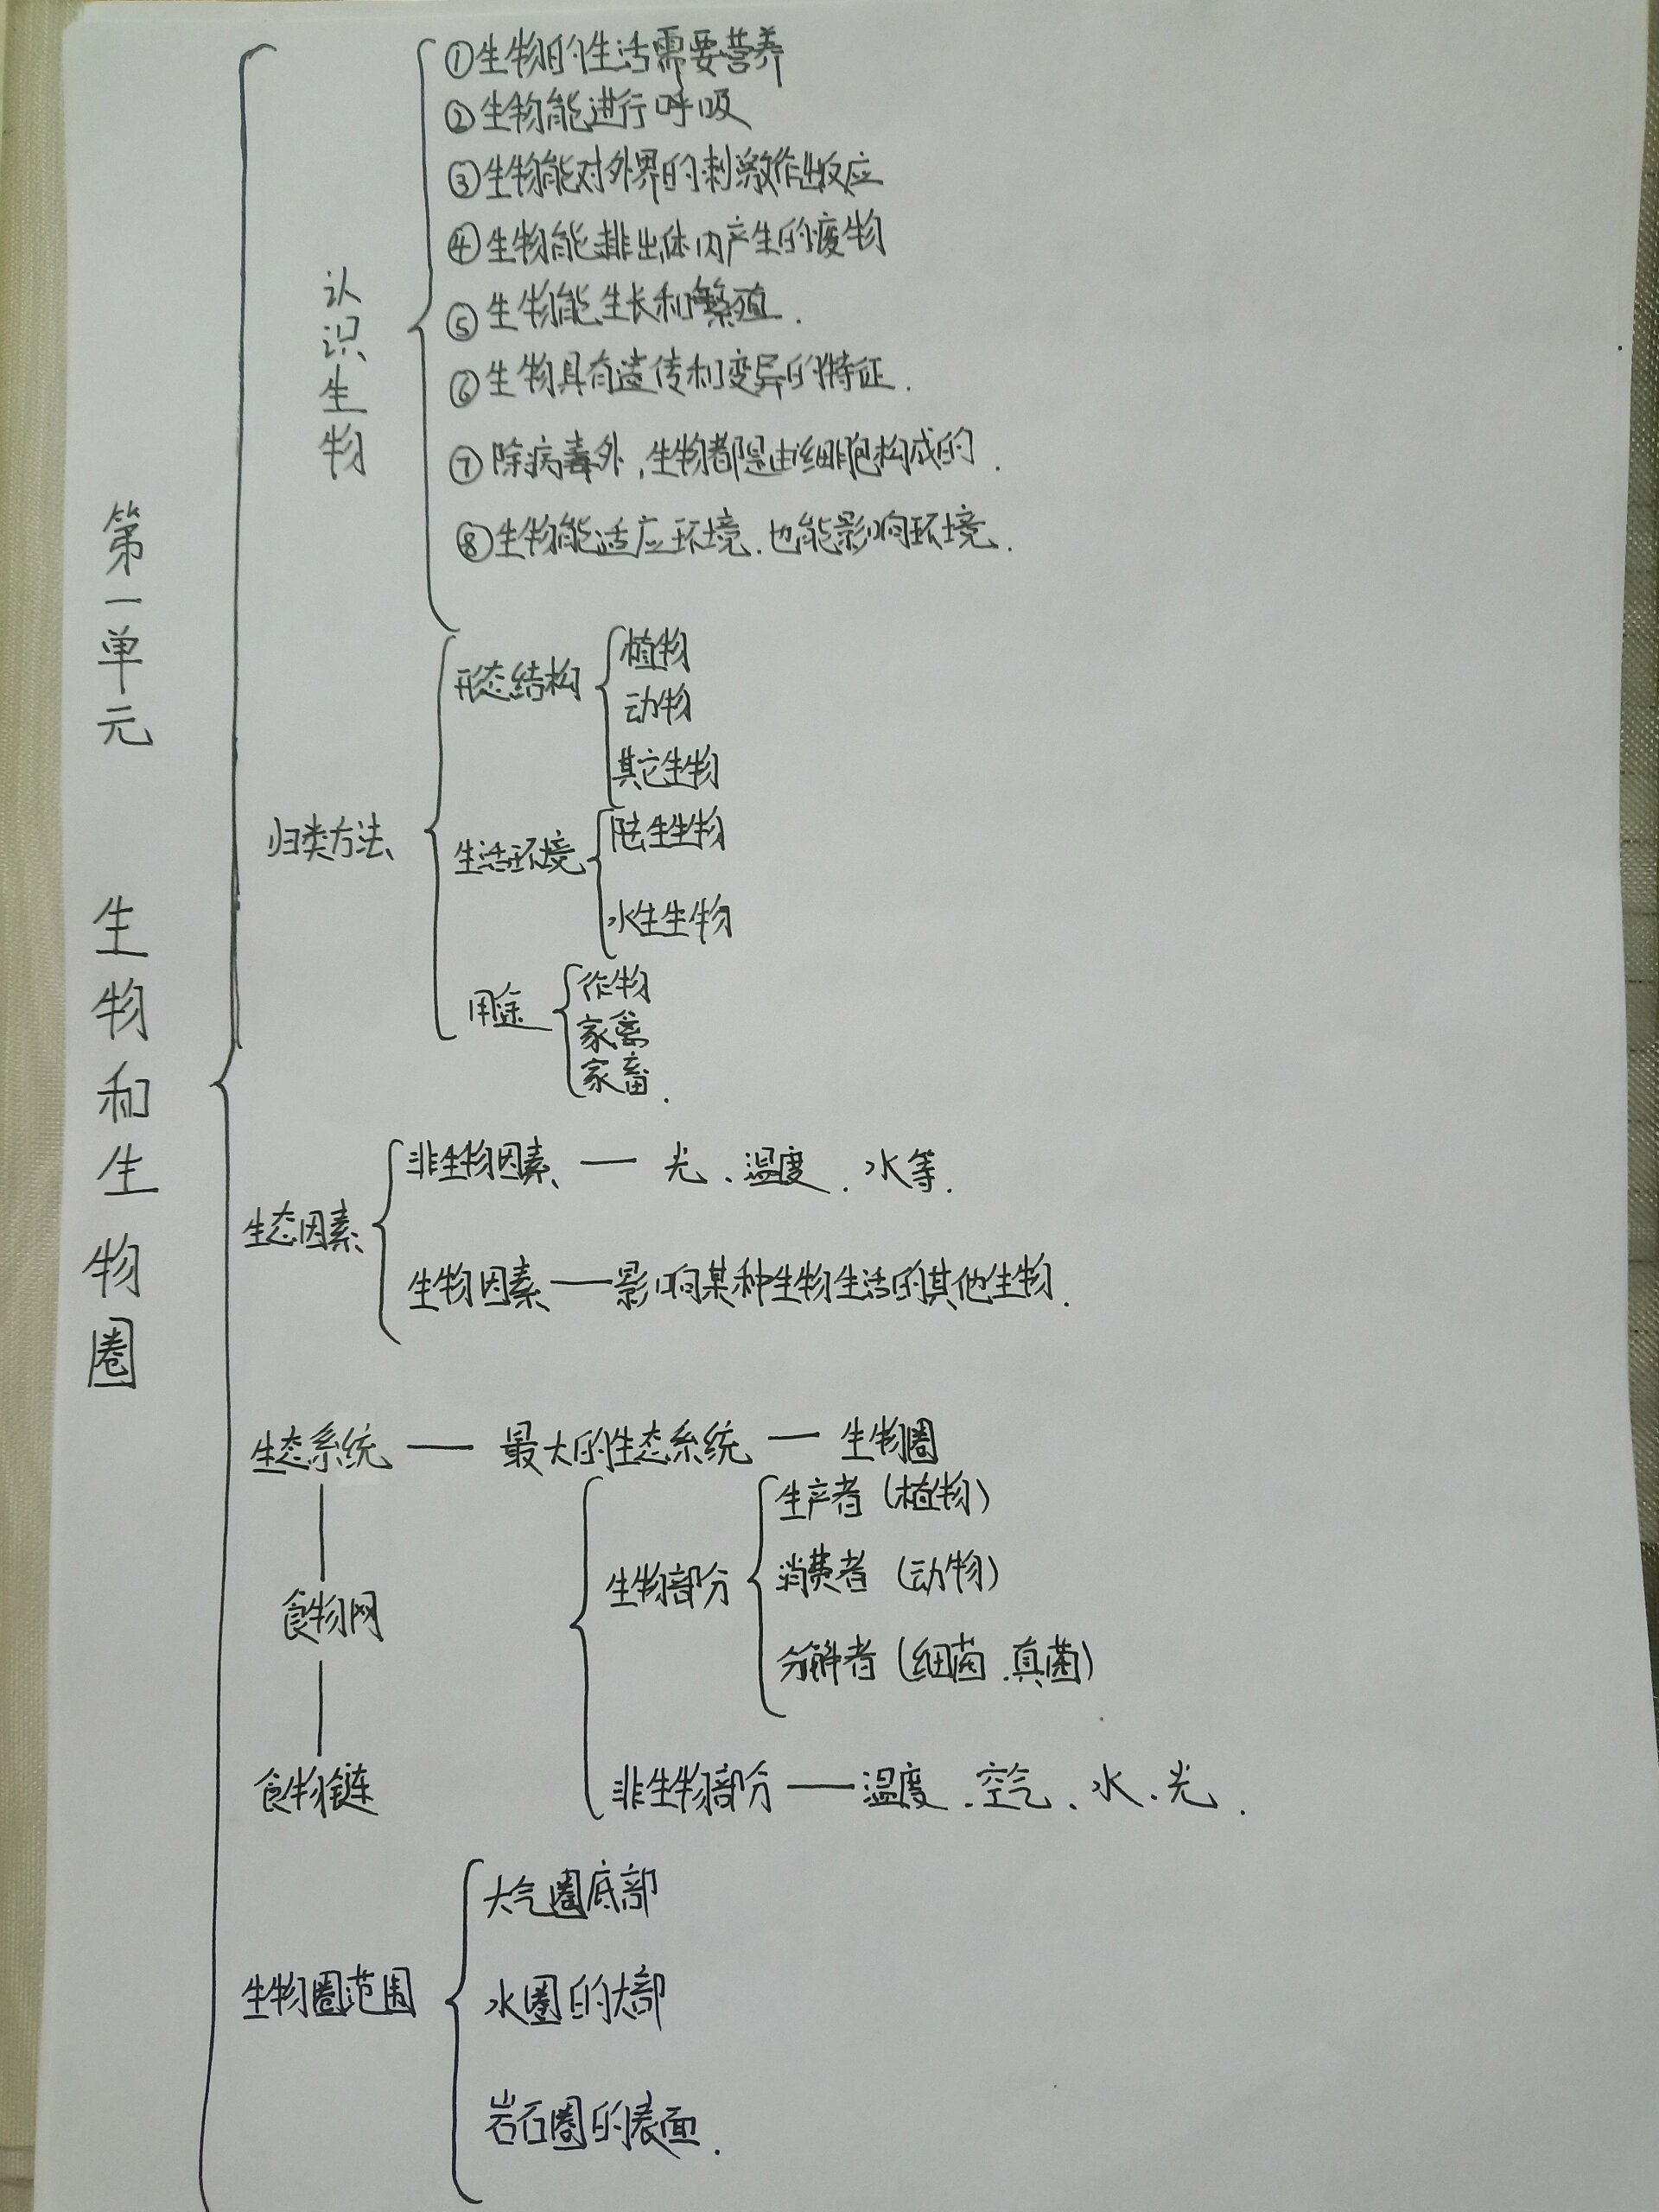 第一单元 生物和生物圈
认识生物
①生物的生活需要营养
②生物能进行呼吸
③生物能对外界的刺激作出反应
④生物能排出体内产生的废物
⑤生物能生长和繁殖.
⑥生物具有遗传和变异的特征.
⑦除病毒外,生物都是由细胞构成的.
⑧生物能适应环境.也能影响环境.
归类方法
形态结构
植物
动物
其它生物
生活环境
陆生生物
水生生物
用途
作物
家禽
家畜.
生态因素
非生物因素 — 光、温度、水等.
生物因素 — 影响某种生物生活的其他生物.
生态系统 — 最大的生态系统 — 生物圈
食物网
食物链
生物部分
生产者(植物)
消费者(动物)
分解者(细菌、真菌)
非生物部分 — 温度、空气、水、光.
生物圈范围
大气圈底部
水圈的大部
岩石圈的表面.